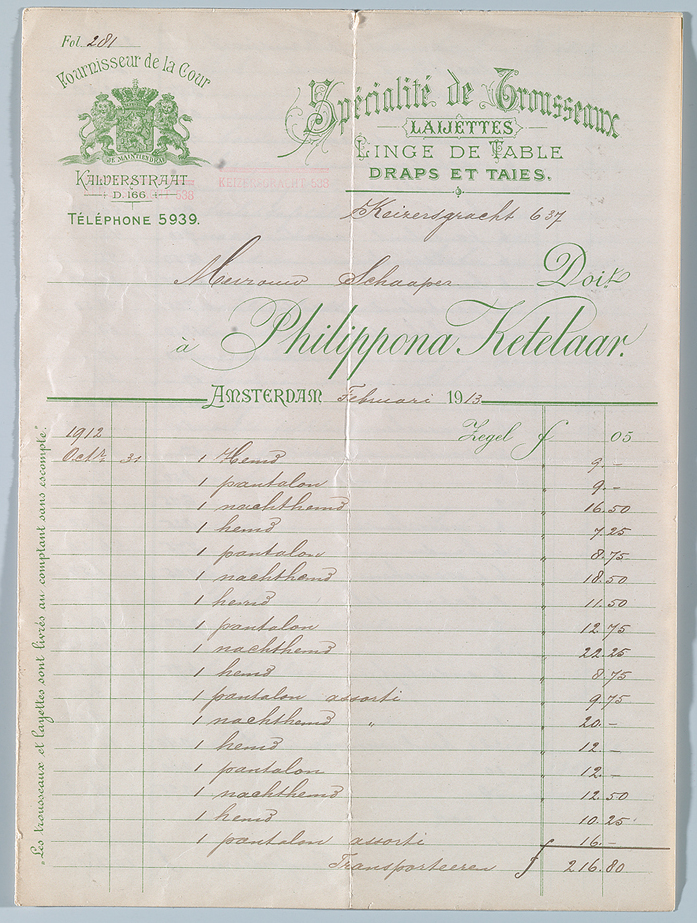 Fol. 281
Fournisseur de la Cour
JE MAINTIENDRAI
KALVERSTRAAT
D. 166.
538
TÉLÉPHONE 5939.
KEIZERSGRACHT 538
Spécialité de Trousseaux
LAIJETTES
LINGE DE TABLE
DRAPS ET TAIES.
Keizersgracht 637
Mevrouw Schaaper Doit
à Philippona Ketelaar.
AMSTERDAM Februari 1913
1912 Zegel f 05
Octr. 31 1 Hemd " 9.–
1 pantalon " 9.–
1 nachthemd " 16.50
1 hemd " 7.25
1 pantalon " 8.75
1 nachthemd " 18.50
1 hemd " 11.50
1 pantalon " 12.75
1 nachthemd " 22.25
1 hemd " 8.75
1 pantalon assorti " 9.75
1 nachthemd " " 20.–
1 hemd " 12.–
1 pantalon " 12.–
1 nachthemd " 12.50
1 hemd " 10.25
1 pantalon assorti " 16.–
Transporteeren f 216.80
„Les trousseaux et layettes sont livrés au comptant sans escompte."